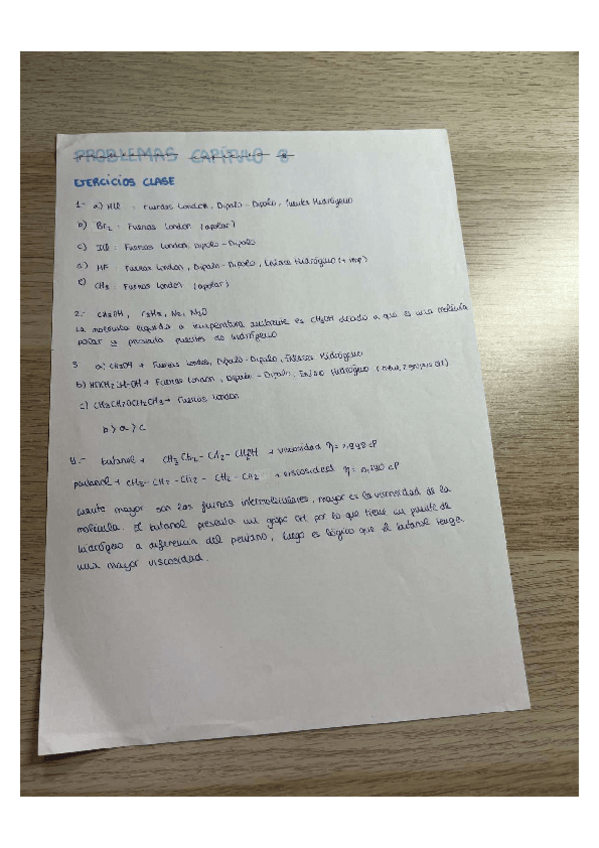 PROBLEMAS CAPÍTULO 8
EJERCICIOS CLASE
1- a) HCl : Fuerzas London, Dipolo-Dipolo, Puentes Hidrógeno
b) Br2 : Fuerzas London (apolar)
c) ICl : Fuerzas London, Dipolo-Dipolo
d) HF : Fuerzas London, Dipolo-Dipolo, Enlace Hidrógeno (+ imp)
e) CH4 : Fuerzas London (apolar)
2.- CH3OH, C3H8, N2, N2O
La molécula líquida a temperatura ambiente es CH3OH debido a que es una molécula
polar y presenta puentes de hidrógeno
3 a) CH3OH → Fuerzas London, Dipolo-Dipolo, Enlaces Hidrógeno
b) → Fuerzas London, Dipolo-Dipolo, Enlace Hidrógeno
c) CH3CH2OCH2CH3 → Fuerzas London
b > a > c
butanol → CH3 CH2 - CH2 - CH2OH → viscosidad η = 2,948 cP
pentano → CH3 - CH2 - CH2 - CH2 - CH3 → viscosidad η = 0,240 cP
cuanto mayor son las fuerzas intermoleculares, mayor es la viscosidad de la
molécula. El butanol presenta un grupo OH por lo que tiene un puente de
hidrógeno a diferencia del pentano, luego es lógico que el butanol tenga
una mayor viscosidad.